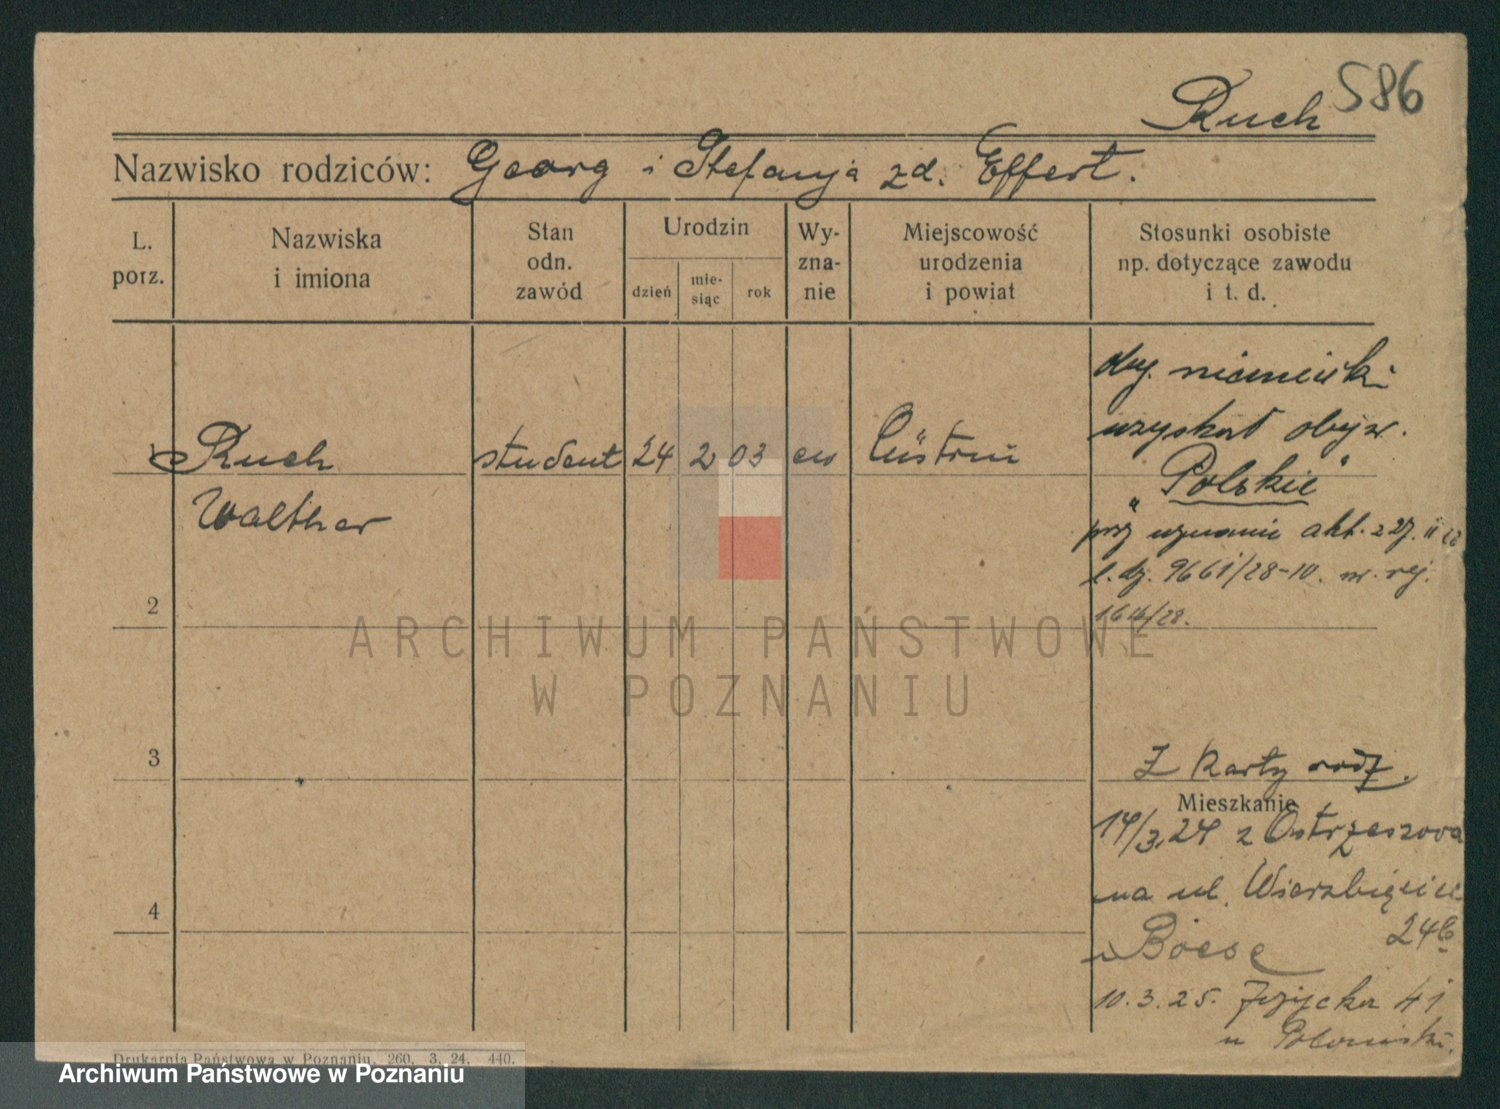 586
Ruch
Nazwisko rodziców: Georg i Stefanja zd. Effert.
L. porz.
Nazwiska i imiona
Stan odn. zawód
Urodzin
dzień
mie- siąc
rok
Wy- zna- nie
Miejscowość urodzenia i powiat
Stosunki osobiste np. dotyczące zawodu i t. d.
1 Ruch student 24 2 03 ew Cüstrin
Walther
niemiecki
uzyskał obyw.
„Polskie"
przez uznanie akt. z
l. dz. 9661/28-10. nr. rej.
2
3
4
Z karty rodz.
Mieszkanie
14/3.24 z Ostrzeszowa
na ul. Wierzbięcice
24b
u Boese
10.3.25. Jeżycka 41
u
Drukarnia Państwowa w Poznaniu. 260. 3. 24. 440.
ARCHIWUM PAŃSTWOWE
W POZNANIU
Archiwum Państwowe w Poznaniu